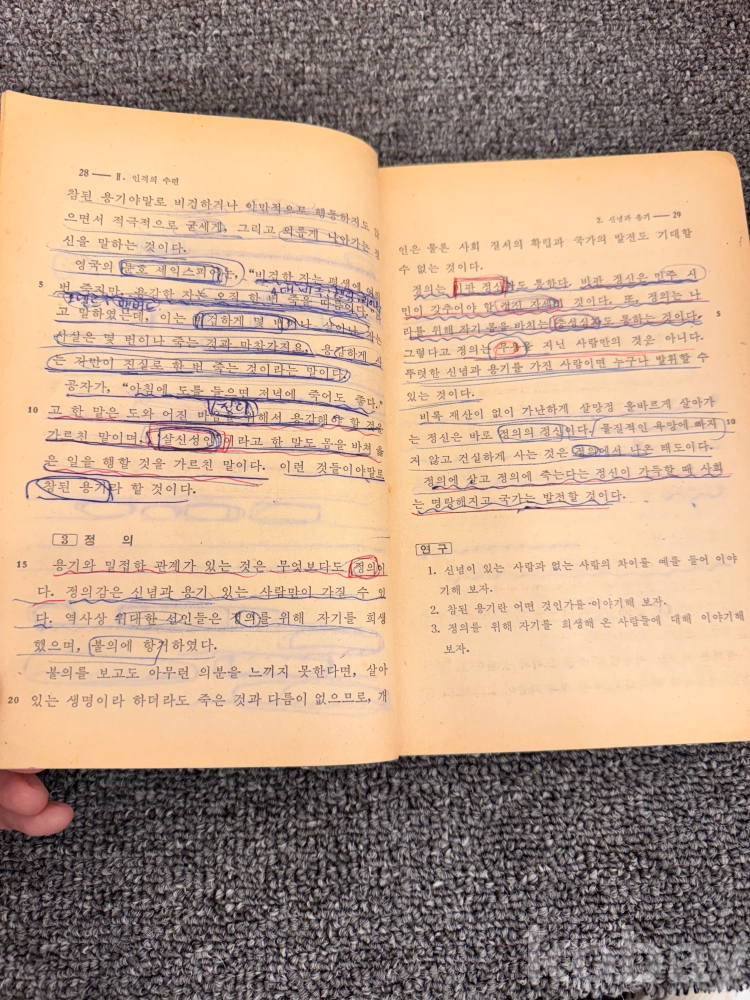 28 — Ⅱ. 인격의 수련
참된 용기야말로 비겁하거나 야만적으로 행동하지도 않
으면서 적극적으로 굳세게, 그리고 외롭게 나아가는 정
신을 말하는 것이다.
영국의 문호 셰익스피어는, “비겁한 자는 평생에
5 번 죽지만, 용감한 자는 오직 한 번 죽을
고 말하였는데, 이는 비겁하게 몇 번이나 살아나는 자는
사실은 몇 번이나 죽는 것과 마찬가지요, 용감하게 사
는 자만이 진실로 한 번 죽는 것이라는 말이다.
공자가, “아침에 도를 들으며 저녁에 죽어도 좋다.”
10 고 한 말은 도와 어진 마음을 위해서 용감해야 할 것을
진리
가르친 말이며, 살신성인이라고 한 말도 몸을 바쳐 옳
은 일을 행할 것을 가르친 말이다. 이런 것들이야말로
참된 용기라 할 것이다.
3 정 의
15 용기와 밀접한 관계가 있는 것은 무엇보다도 정의이
다. 정의감은 신념과 용기 있는 사람만이 가질 수 있
다. 역사상 위대한 선인들은 정의를 위해 자기를 희생
했으며, 불의에 항거하였다.
불의를 보고도 아무런 의분을 느끼지 못한다면, 살아
20 있는 생명이라 하더라도 죽은 것과 다름이 없으므로, 개
2. 신념과 용기 — 29
인은 물론 사회 질서의 확립과 국가의 발전도 기대할
수 없는 것이다.
정의는 비판 정신과도 통한다. 비판 정신은 민주 시
민이 갖추어야 할 정신 자세인 것이다. 또, 정의는 나
라를 위해 자기 몸을 바치는 충성심과도 통하는 것이다. 5
그렇다고 정의는 무력을 지닌 사람만의 것은 아니다.
뚜렷한 신념과 용기를 가진 사람이면 누구나 발휘할 수
있는 것이다.
비록 재산이 없이 가난하게 살망정 올바르게 살아가
는 정신은 바로 정의의 정신이다. 물질적인 욕망에 빠지 10
지 않고 건실하게 사는 것은 정의에서 나온 태도이다.
정의에 살고 정의에 죽는다는 정신이 가득할 때 사회
는 명랑해지고 국가는 발전할 것이다.
연구
1. 신념이 있는 사람과 없는 사람의 차이를 예를 들어 이야
기해 보자.
2. 참된 용기란 어떤 것인가를 이야기해 보자.
3. 정의를 위해 자기를 희생해 온 사람들에 대해 이야기해
보자.
kobay